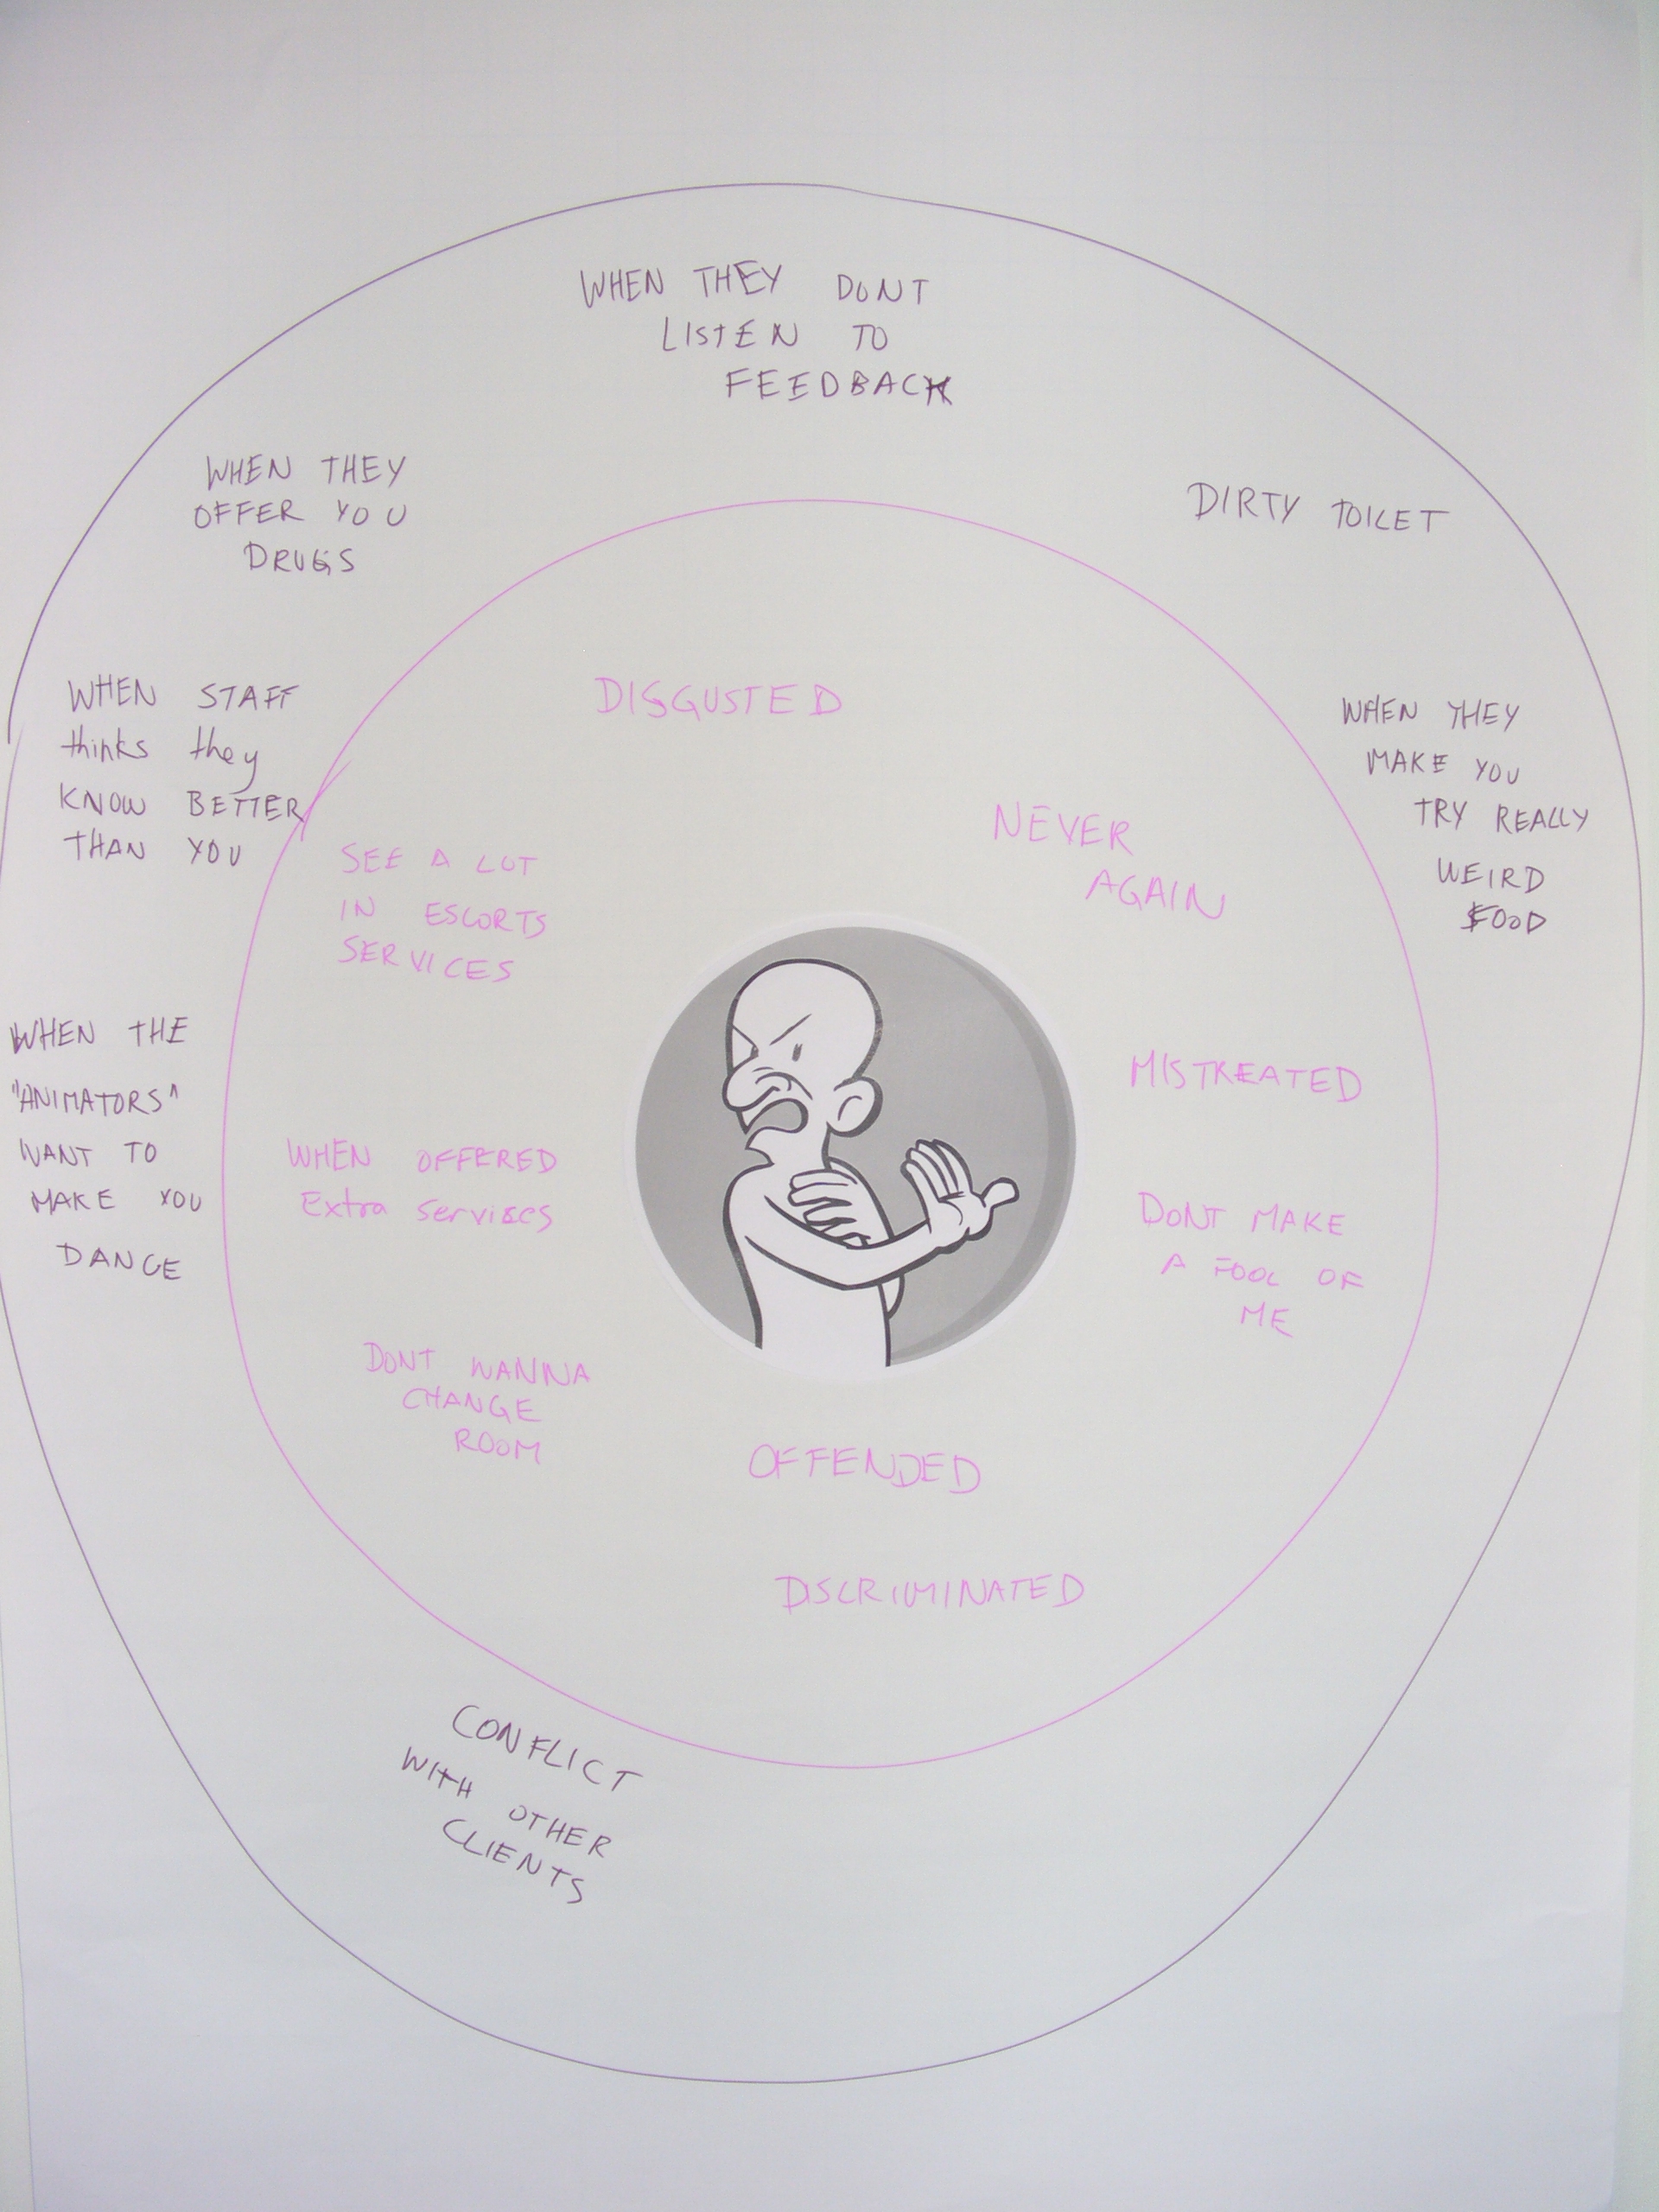 WHEN THEY DONT
LISTEN TO
FEEDBACK
WHEN THEY
OFFER YOU
DRUGS
DIRTY TOILET
WHEN STAFF
thinks they
KNOW BETTER
THAN YOU
WHEN THEY
MAKE YOU
TRY REALLY
WEIRD
FOOD
WHEN THE
"ANIMATORS"
WANT TO
MAKE YOU
DANCE
DISGUSTED
NEVER
AGAIN
SEE A LOT
IN ESCORTS
SERVICES
MISTREATED
WHEN OFFERED
Extra services
DONT MAKE
A FOOL OF
ME
DONT WANNA
CHANGE
ROOM
OFFENDED
DISCRIMINATED
CONFLICT
WITH OTHER
CLIENTS